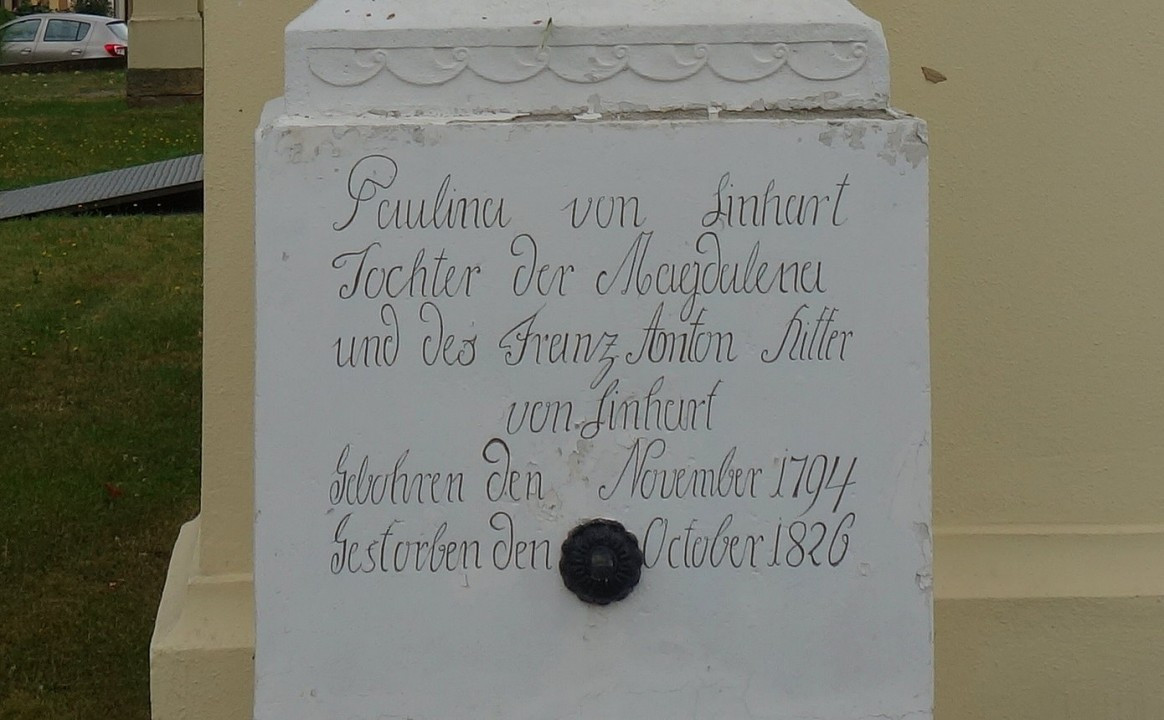 Paulina von Linhart
Tochter der Magdalena
und des Franz Anton Ritter
von Linhart
Gebohren den November 1794
Gestorben den October 1826